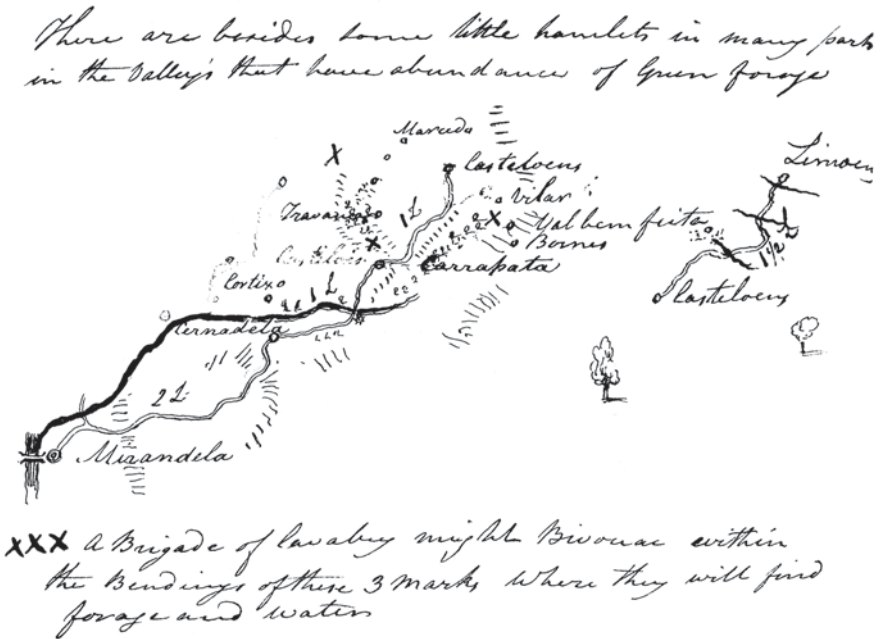 There are besides some little hamlets in many parts
in the Valley's that have abundance of Green forage
Maceda
Limaens
X
Casteloens
Vilar
Travanca
1 L
X
Valbemfeita
X
Bornes
1 1/2 L
Carrapata
Cortixo
1 L
Casteloens
Cernadela
2 L
Mirandela
XXX A Brigade of Cavalry might Bivouac within
the Bendings of these 3 marks where they will find
forage and water